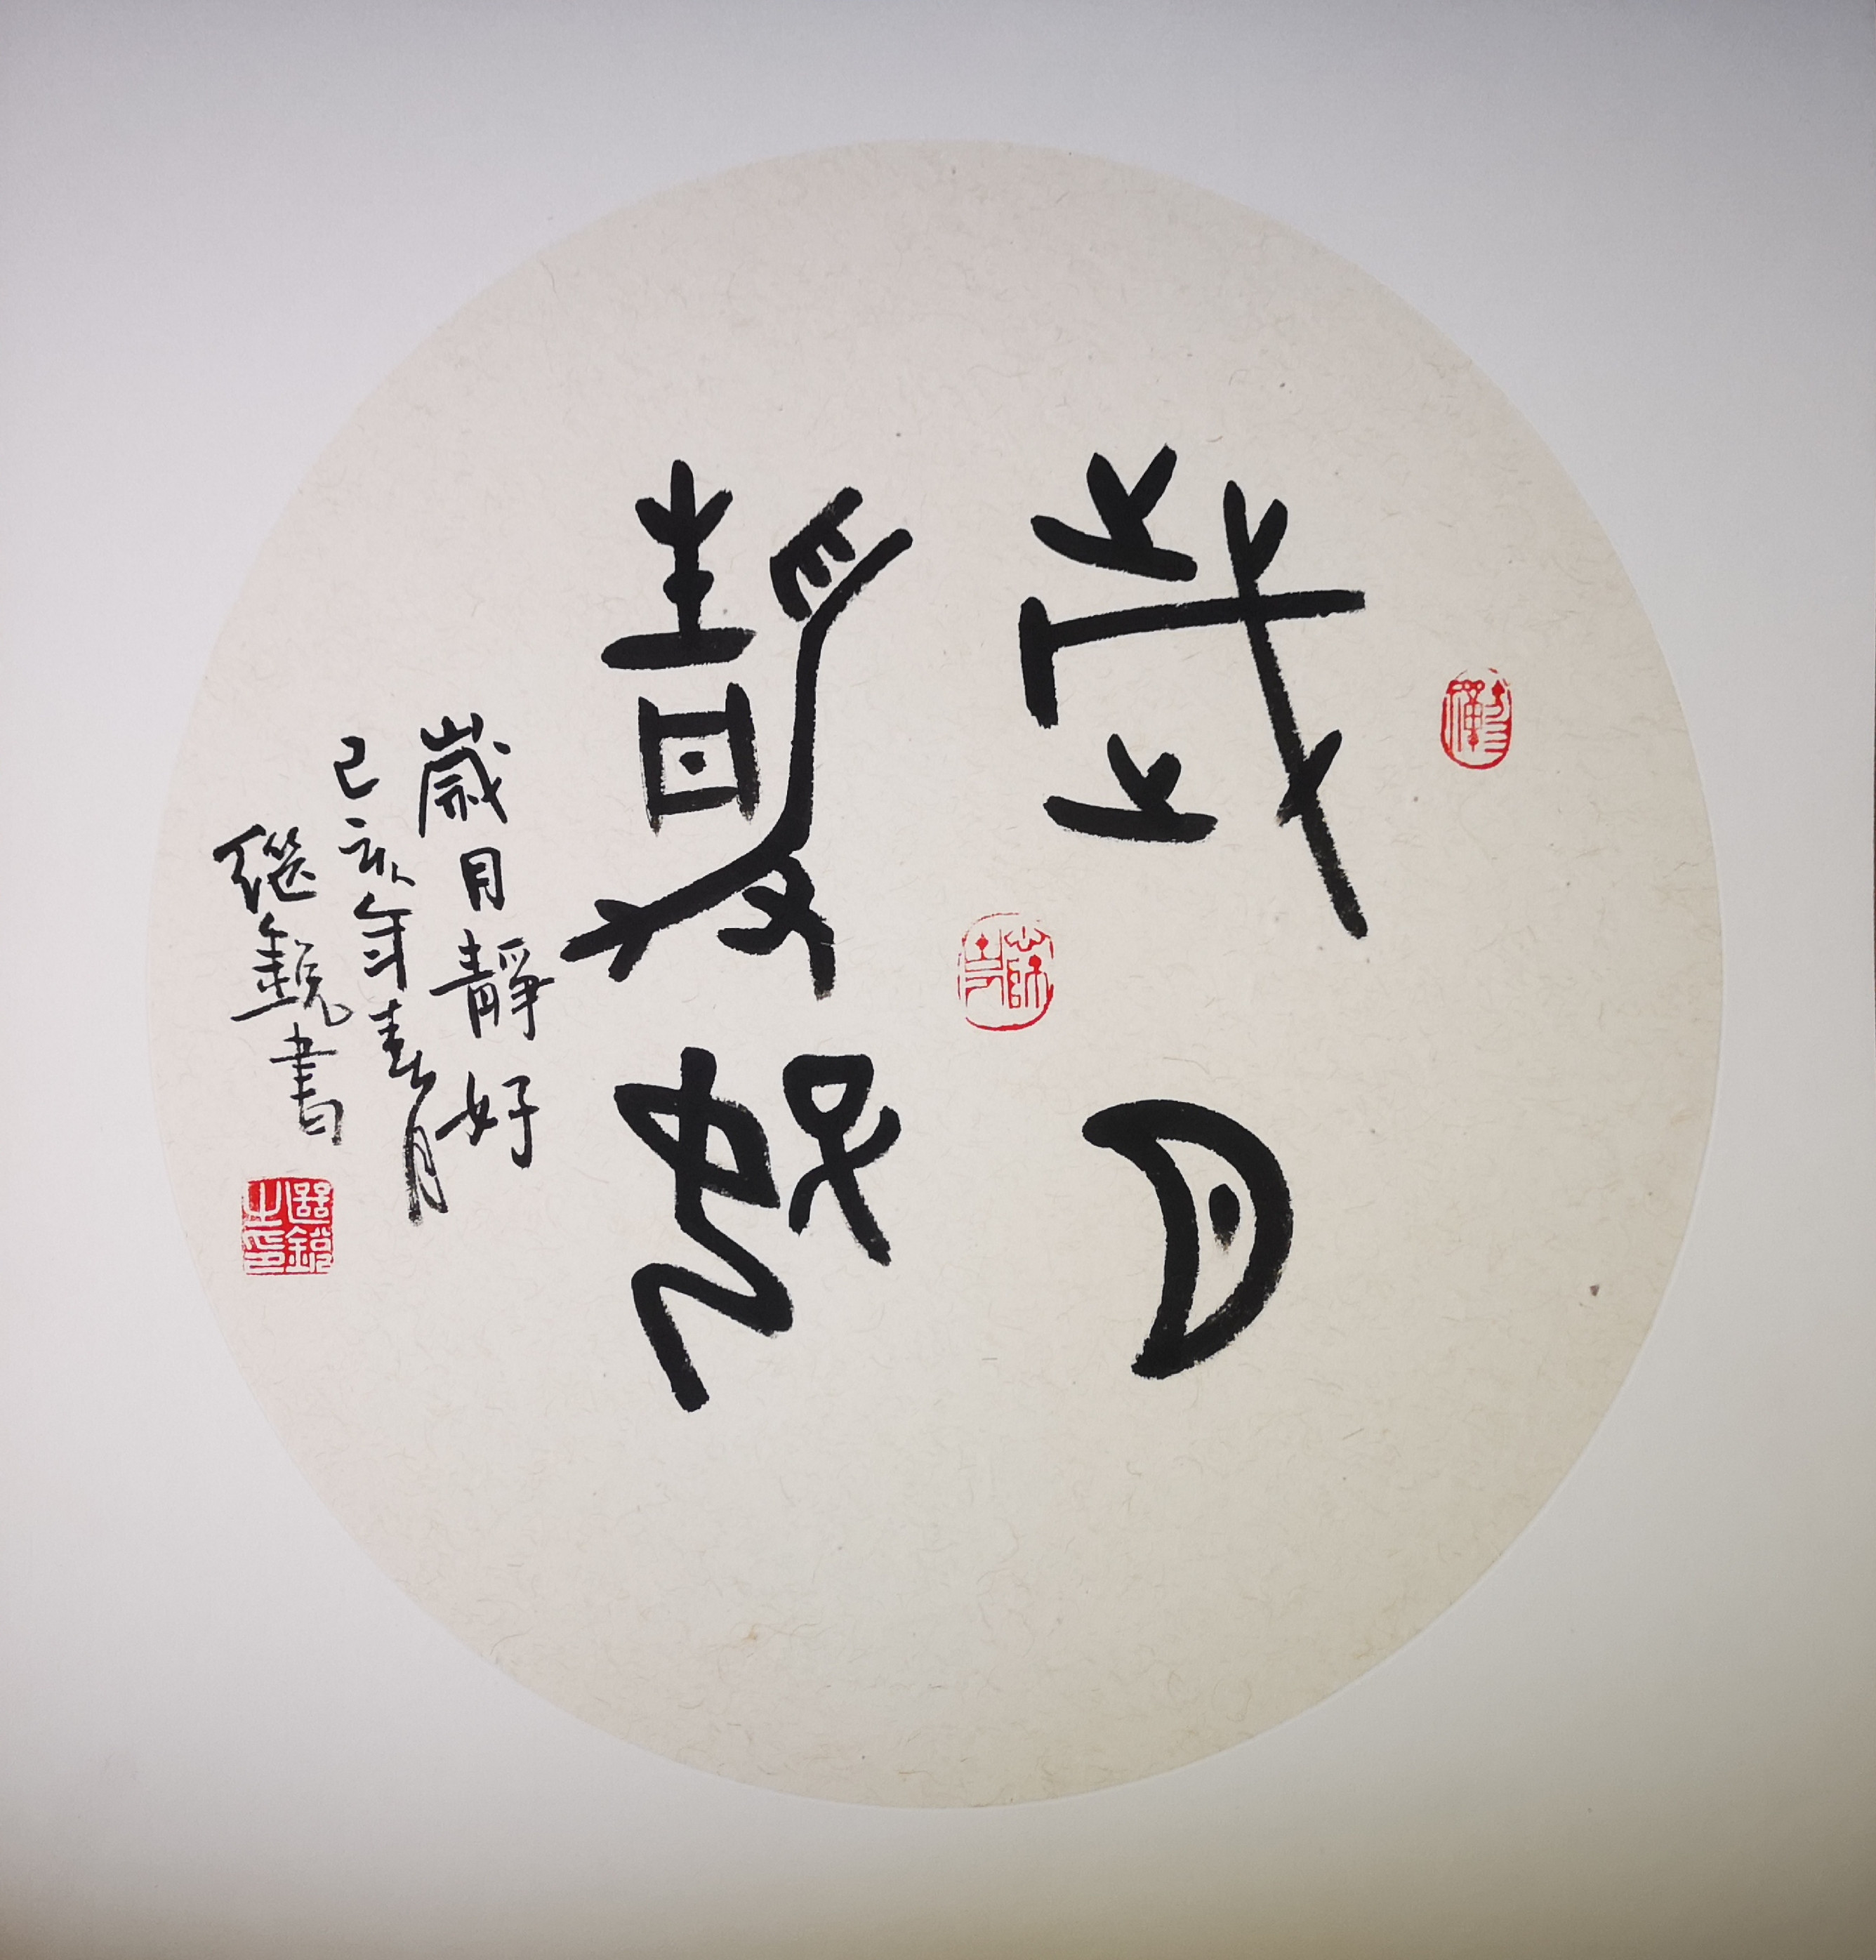 歲月
靜好
歲月靜好
己亥年春月
继銳書